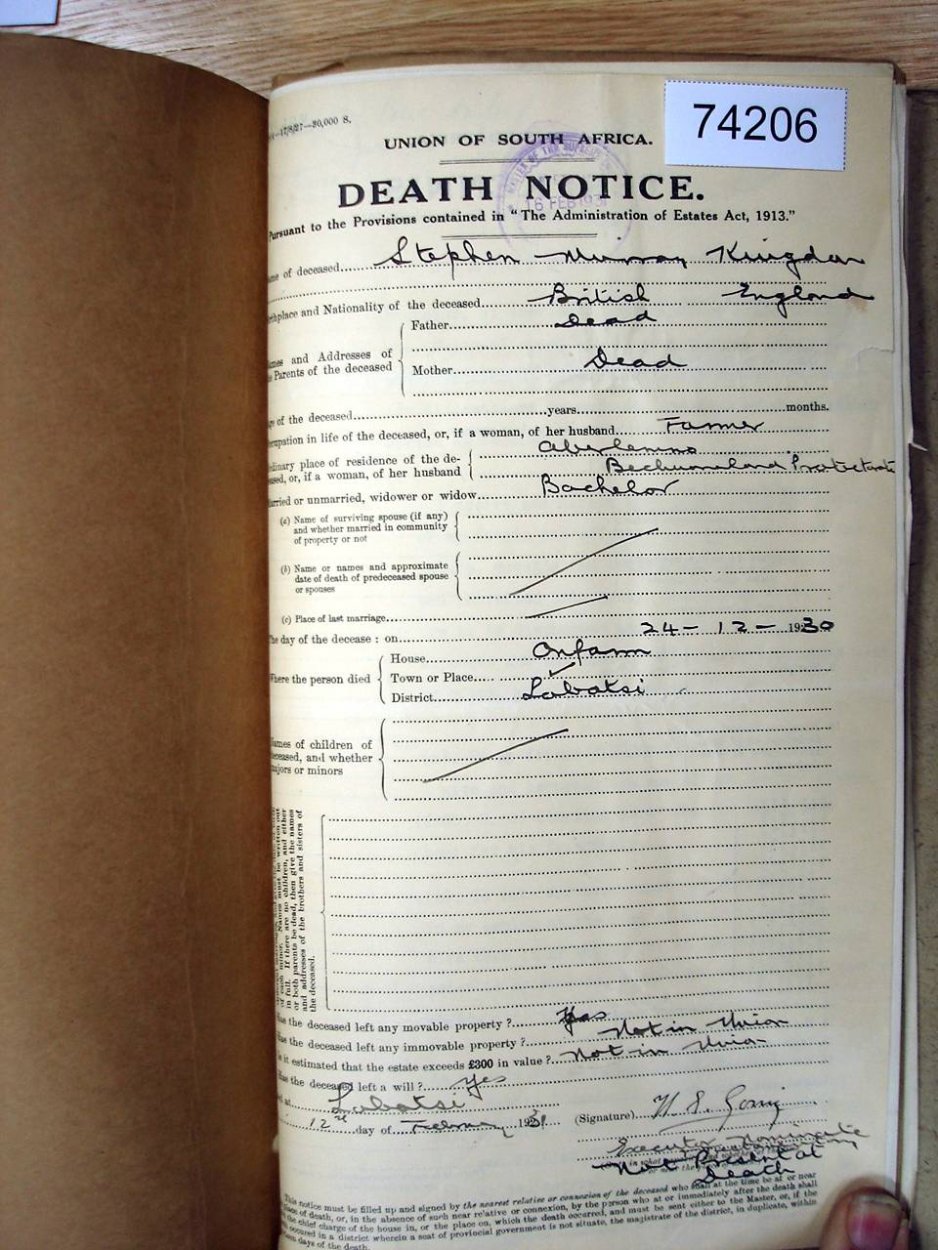 74206
—17/8/27—30,000 S.
UNION OF SOUTH AFRICA.
DEATH NOTICE.
16 FEB 193
Pursuant to the Provisions contained in "The Administration of Estates Act, 1913."
of deceased Stephen Murray Kingdon
Birthplace and Nationality of the deceased British England
Father Dead
Names and Addresses of
Parents of the deceased
Mother Dead
of the deceased years months.
Occupation in life of the deceased, or, if a woman, of her husband Farmer
Ordinary place of residence of the de-
ceased, or, if a woman, of her husband
Aberlemno
Bechuanaland Protectorate
Married or unmarried, widower or widow Bachelor
(a) Name of surviving spouse (if any)
and whether married in community
of property or not
(b) Name or names and approximate
date of death of predeceased spouse
or spouses
(c) Place of last marriage
The day of the decease : on 24 – 12 – 1930
Where the person died
House On farm
Town or Place
District Lobatsi
Names of children of
deceased, and whether
majors or minors
in full. If there are no children, and either
or both parents be dead, then give the names
and addresses of the brothers and sisters of
the deceased.
Has the deceased left any movable property ? Yes
Has the deceased left any immovable property ? Not in Union
Is it estimated that the estate exceeds £300 in value ? Not in Union
Has the deceased left a will ? Yes
at Lobatsi
12th day of February 1931
(Signature)
Executor Nominate
Not Present at
Death
This notice must be filled up and signed by the nearest relative or connexion of the deceased who shall at the time be at or near
place of death, or, in the absence of such near relative or connexion, by the person who at or immediately after the death shall
the chief charge of the house in, or the place on, which the death occurred, and must be sent either to the Master, or, if the
occurred in a district wherein a seat of provincial government is not situate, the magistrate of the district, in duplicate, within
days of the death.